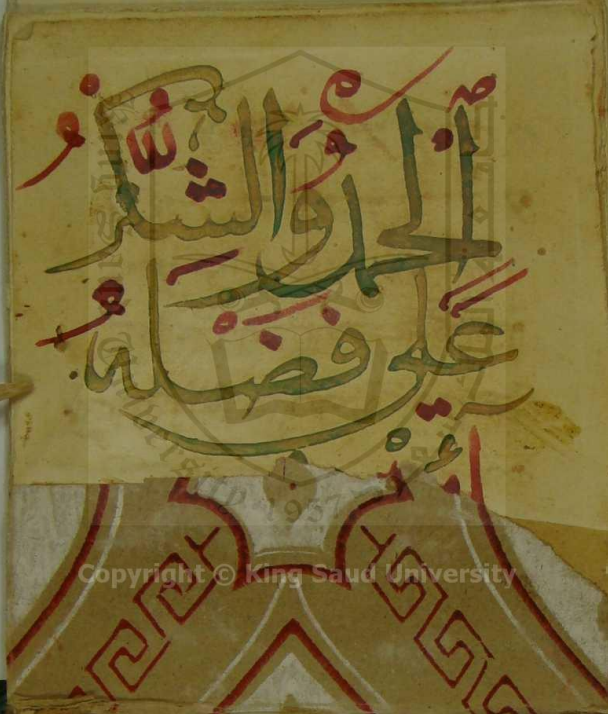 الحمد والشكر
على فضله
Copyright © King Saud University
1957